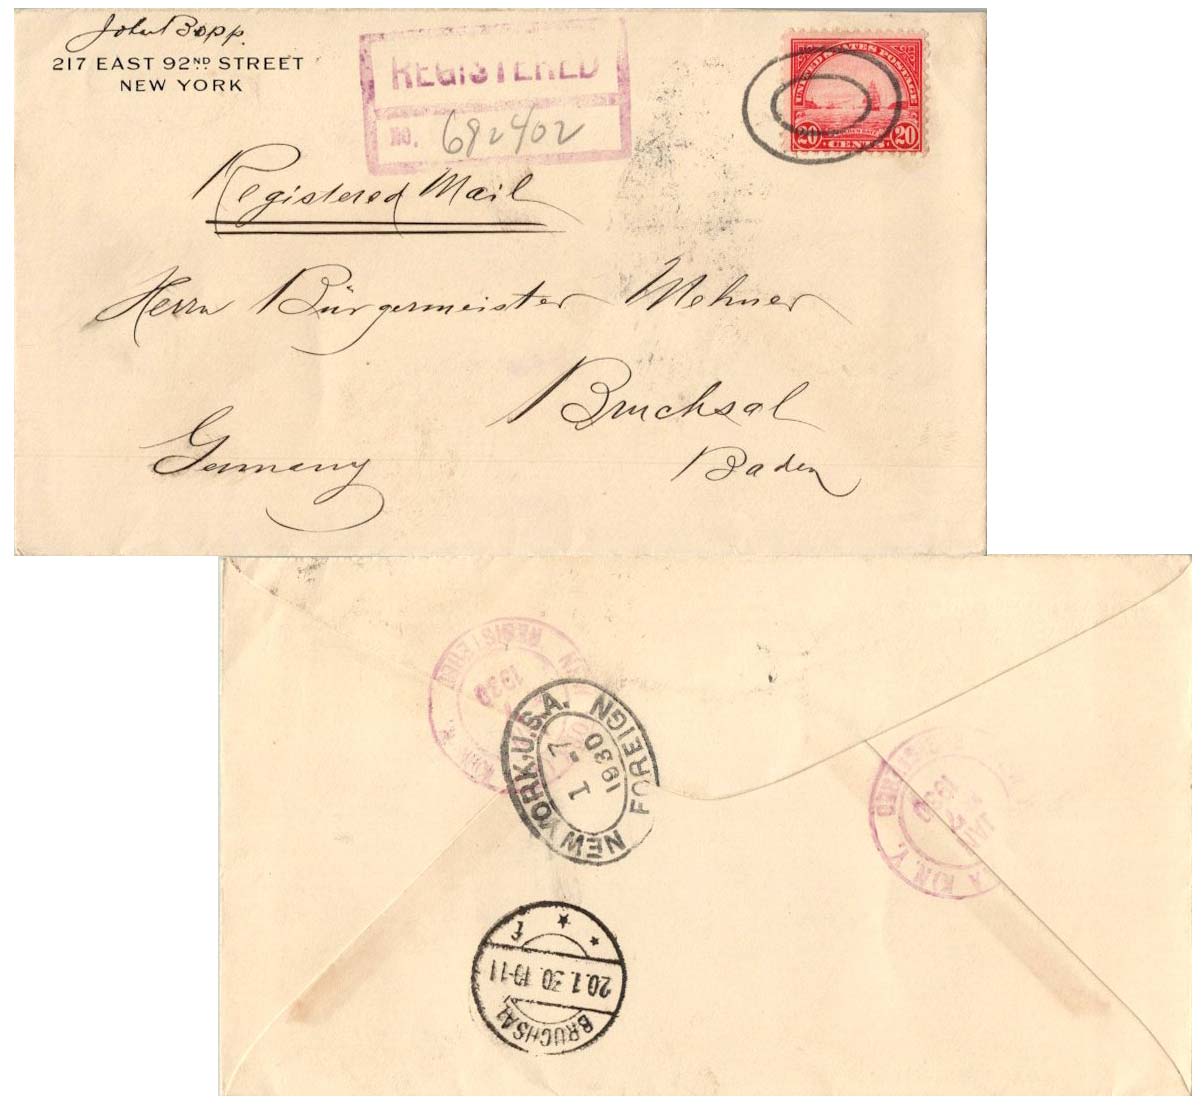 John Bopp.
217 EAST 92ND STREET
NEW YORK
REGISTERED
NO. 682402
UNITED STATES POSTAGE
20 20
CENTS
Registered Mail
Herrn Bürgermeister Mehner
Bruchsal
Baden
Germany
REGISTERED
1930
NEW YORK, U.S.A.
FOREIGN
1-7
1930
REGISTERED
JAN
1930
N.Y.
20.1.30.10-11
BRUCHSAL